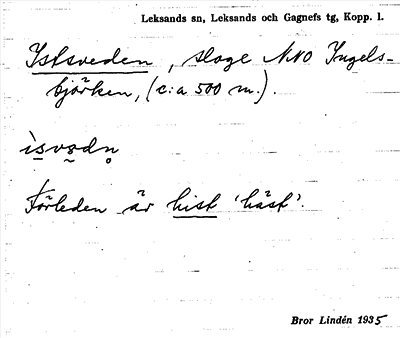 Leksands sn, Leksands och Gagnefs tg, Kopp. l.
Istsveden, sloge NNO Ingels-
björken, (c:a 500 m.).
Förleden är hist 'häst'.
Bror Lindén 1935